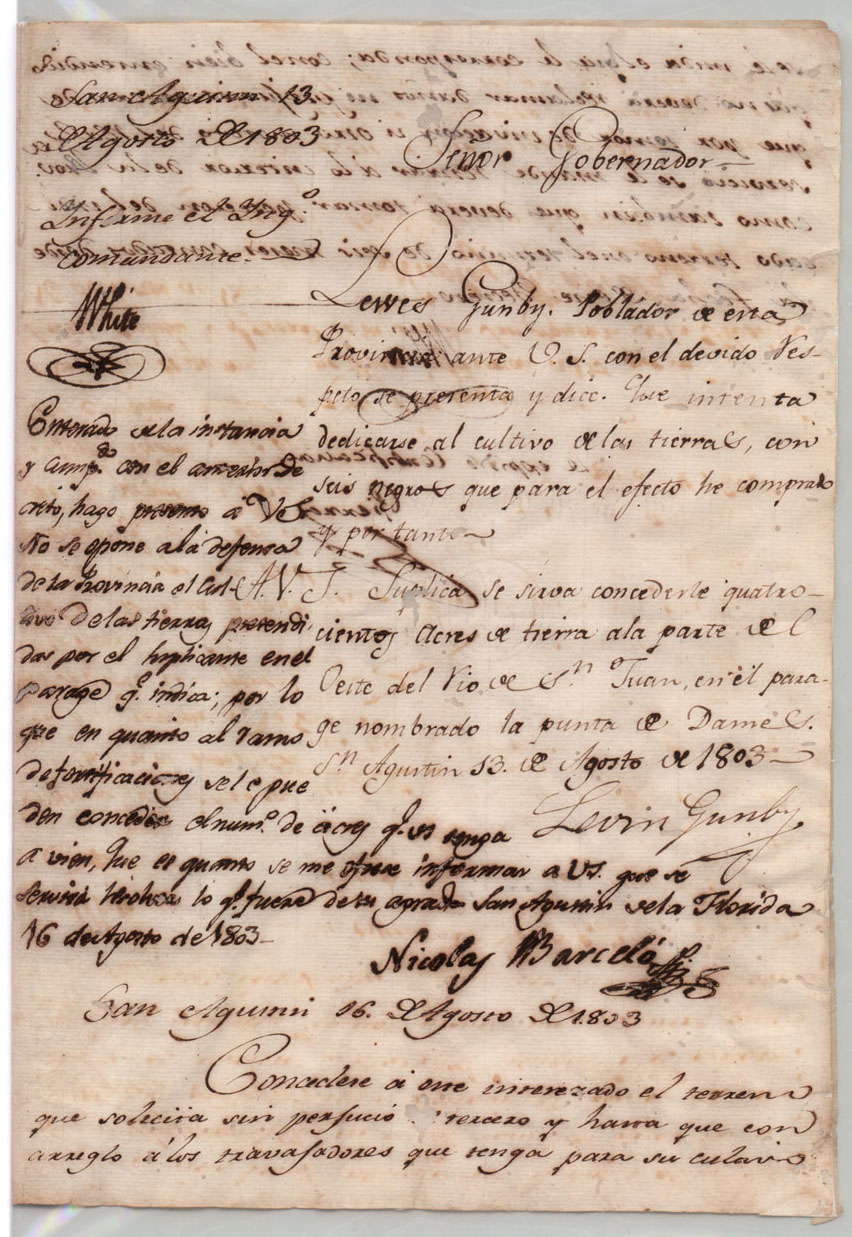 San Agustin 13
de Agosto de 1803
Informe el Ingº
Comandante.
White
Señor Gobernador
Lewes Gunby. Poblador de esta
Provincia ante V. S. con el devido Res-
peto se presenta y dice: Que intenta
dedicarse al cultivo de las tierras, con
seis negros que para el efecto he comprado
y por tanto
A. V. S. Suplica se sirva concederle quatro-
cientos Acres de tierra ala parte del
Oeste del Rio de Sn Juan, en el para-
ge nombrado la punta de Dames.
Sn Agustin 13. de Agosto de 1803
Levin Gunby
Enterado de la instancia
y cumpdo con el anterior de
creto, hago presente a VS
No se opone a la defensa
de la Provincia el cul-
tivo de las tierras pretendi
das por el suplicante en el
parage q. indica; por lo
que en quanto al ramo
de fortificacion se le pue
den conceder el numº de acres q. VS tenga
a vien, que es quanto se me ofrece informar a VS. que se
servirá lo q. fuere de su agrado San Agustin de la Florida
16 de Agosto de 1803
Nicolas Barceló
San Agustin 16. de Agosto de 1803
Concedese á este interezado el terreno
que solicita sin perjucio tercero y hasta que con
arreglo á los travajadores que tenga para su cultivo